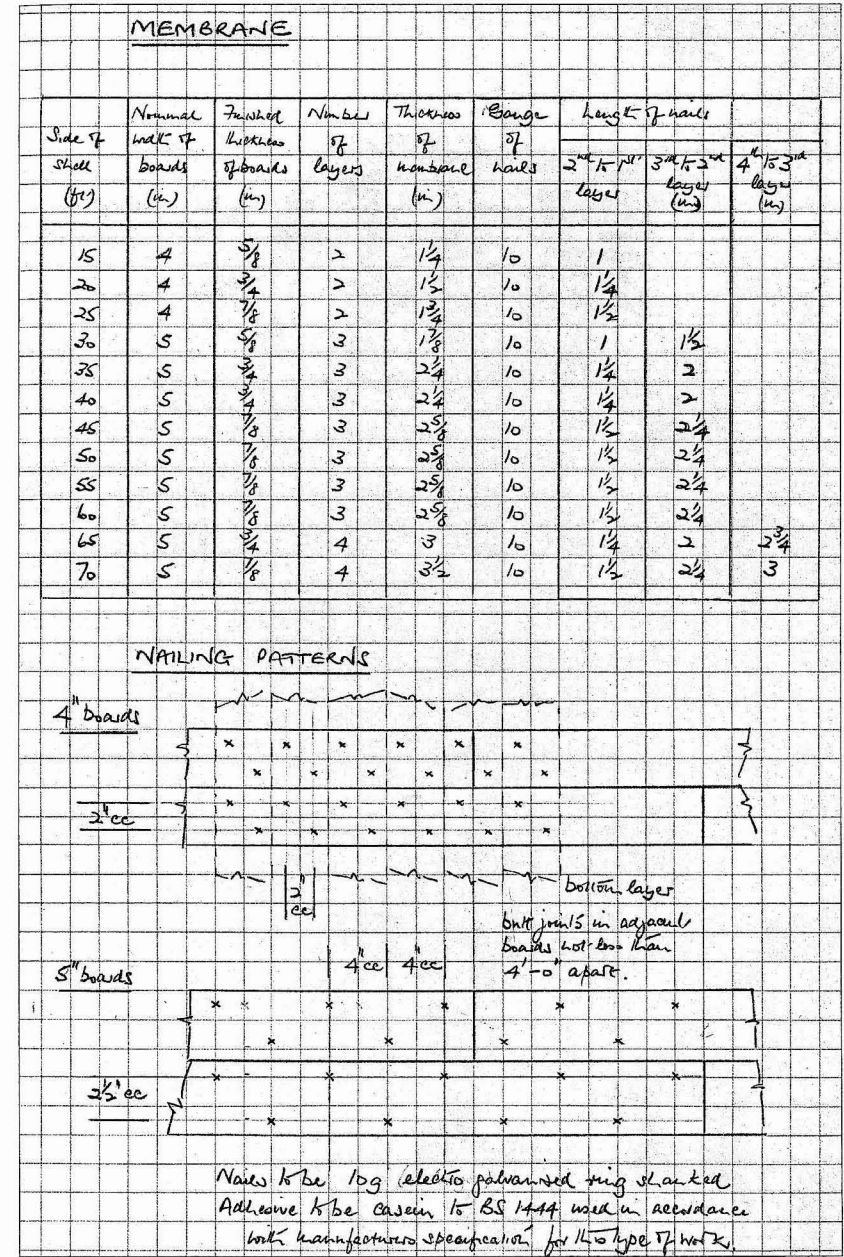 MEMBRANE
Side of shell (ft) Nominal width of boards (in) Finished thickness of boards (in) Number of layers Thickness of membrane (in) Gauge of nails Length of nails
2nd to 1st layer 3rd to 2nd layer (in) 4th to 3rd layer (in)
15 4 5/8 2 1 1/4 10 1
20 4 3/4 2 1 1/2 10 1 1/4
25 4 7/8 2 1 3/4 10 1 1/2
30 5 5/8 3 1 7/8 10 1 1 1/2
35 5 3/4 3 2 1/4 10 1 1/4 2
40 5 3/4 3 2 1/4 10 1 1/4 2
45 5 7/8 3 2 5/8 10 1 1/2 2 1/4
50 5 7/8 3 2 5/8 10 1 1/2 2 1/4
55 5 7/8 3 2 5/8 10 1 1/2 2 1/4
60 5 7/8 3 2 5/8 10 1 1/2 2 1/4
65 5 3/4 4 3 10 1 1/4 2 2 3/4
70 5 7/8 4 3 1/2 10 1 1/2 2 1/4 3
NAILING PATTERNS
4" boards
2" cc
2" cc
bottom layer
butt joints in adjacent
boards not less than
4'-0" apart.
4" cc 4" cc
5" boards
2 1/2" cc
Nails to be 10g electro galvanised ring shanked
Adhesive to be casein to BS 1444 used in accordance
with manufacturers specification for this type of work.